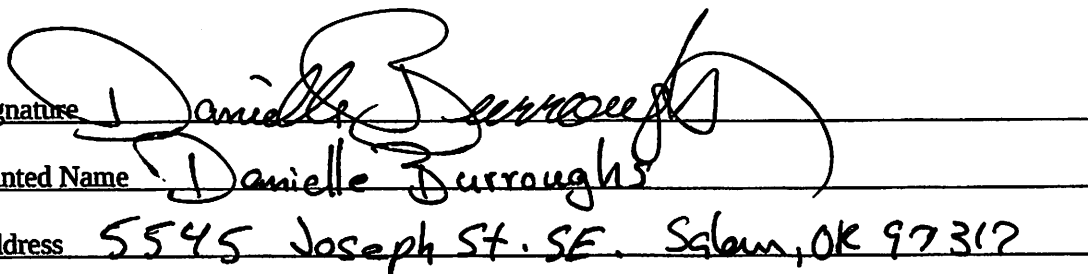 gnature Danielle Burroughs
nted Name Danielle Burroughs
ddress 5545 Joseph St. SE. Salem, OR 97317